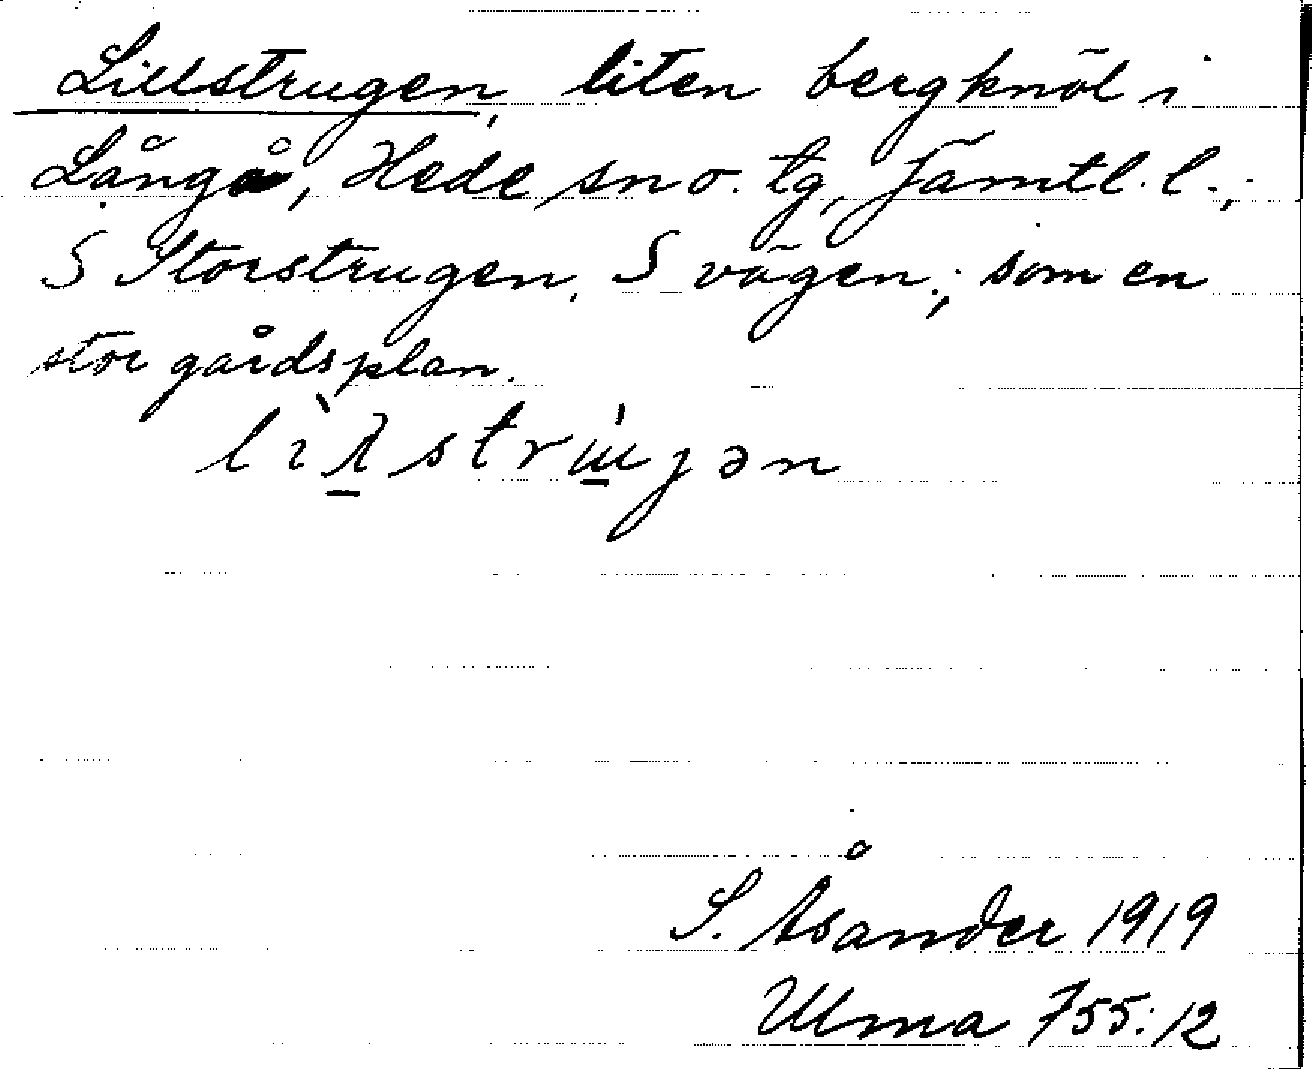 Lillstrugen, liten bergknöl i
Långå, Hede sn o. tg, Jämtl. l.;
S Storstrugen, S vägen; som en
stor gårdsplan.
S. Åsander 1919
Ulma 755:12